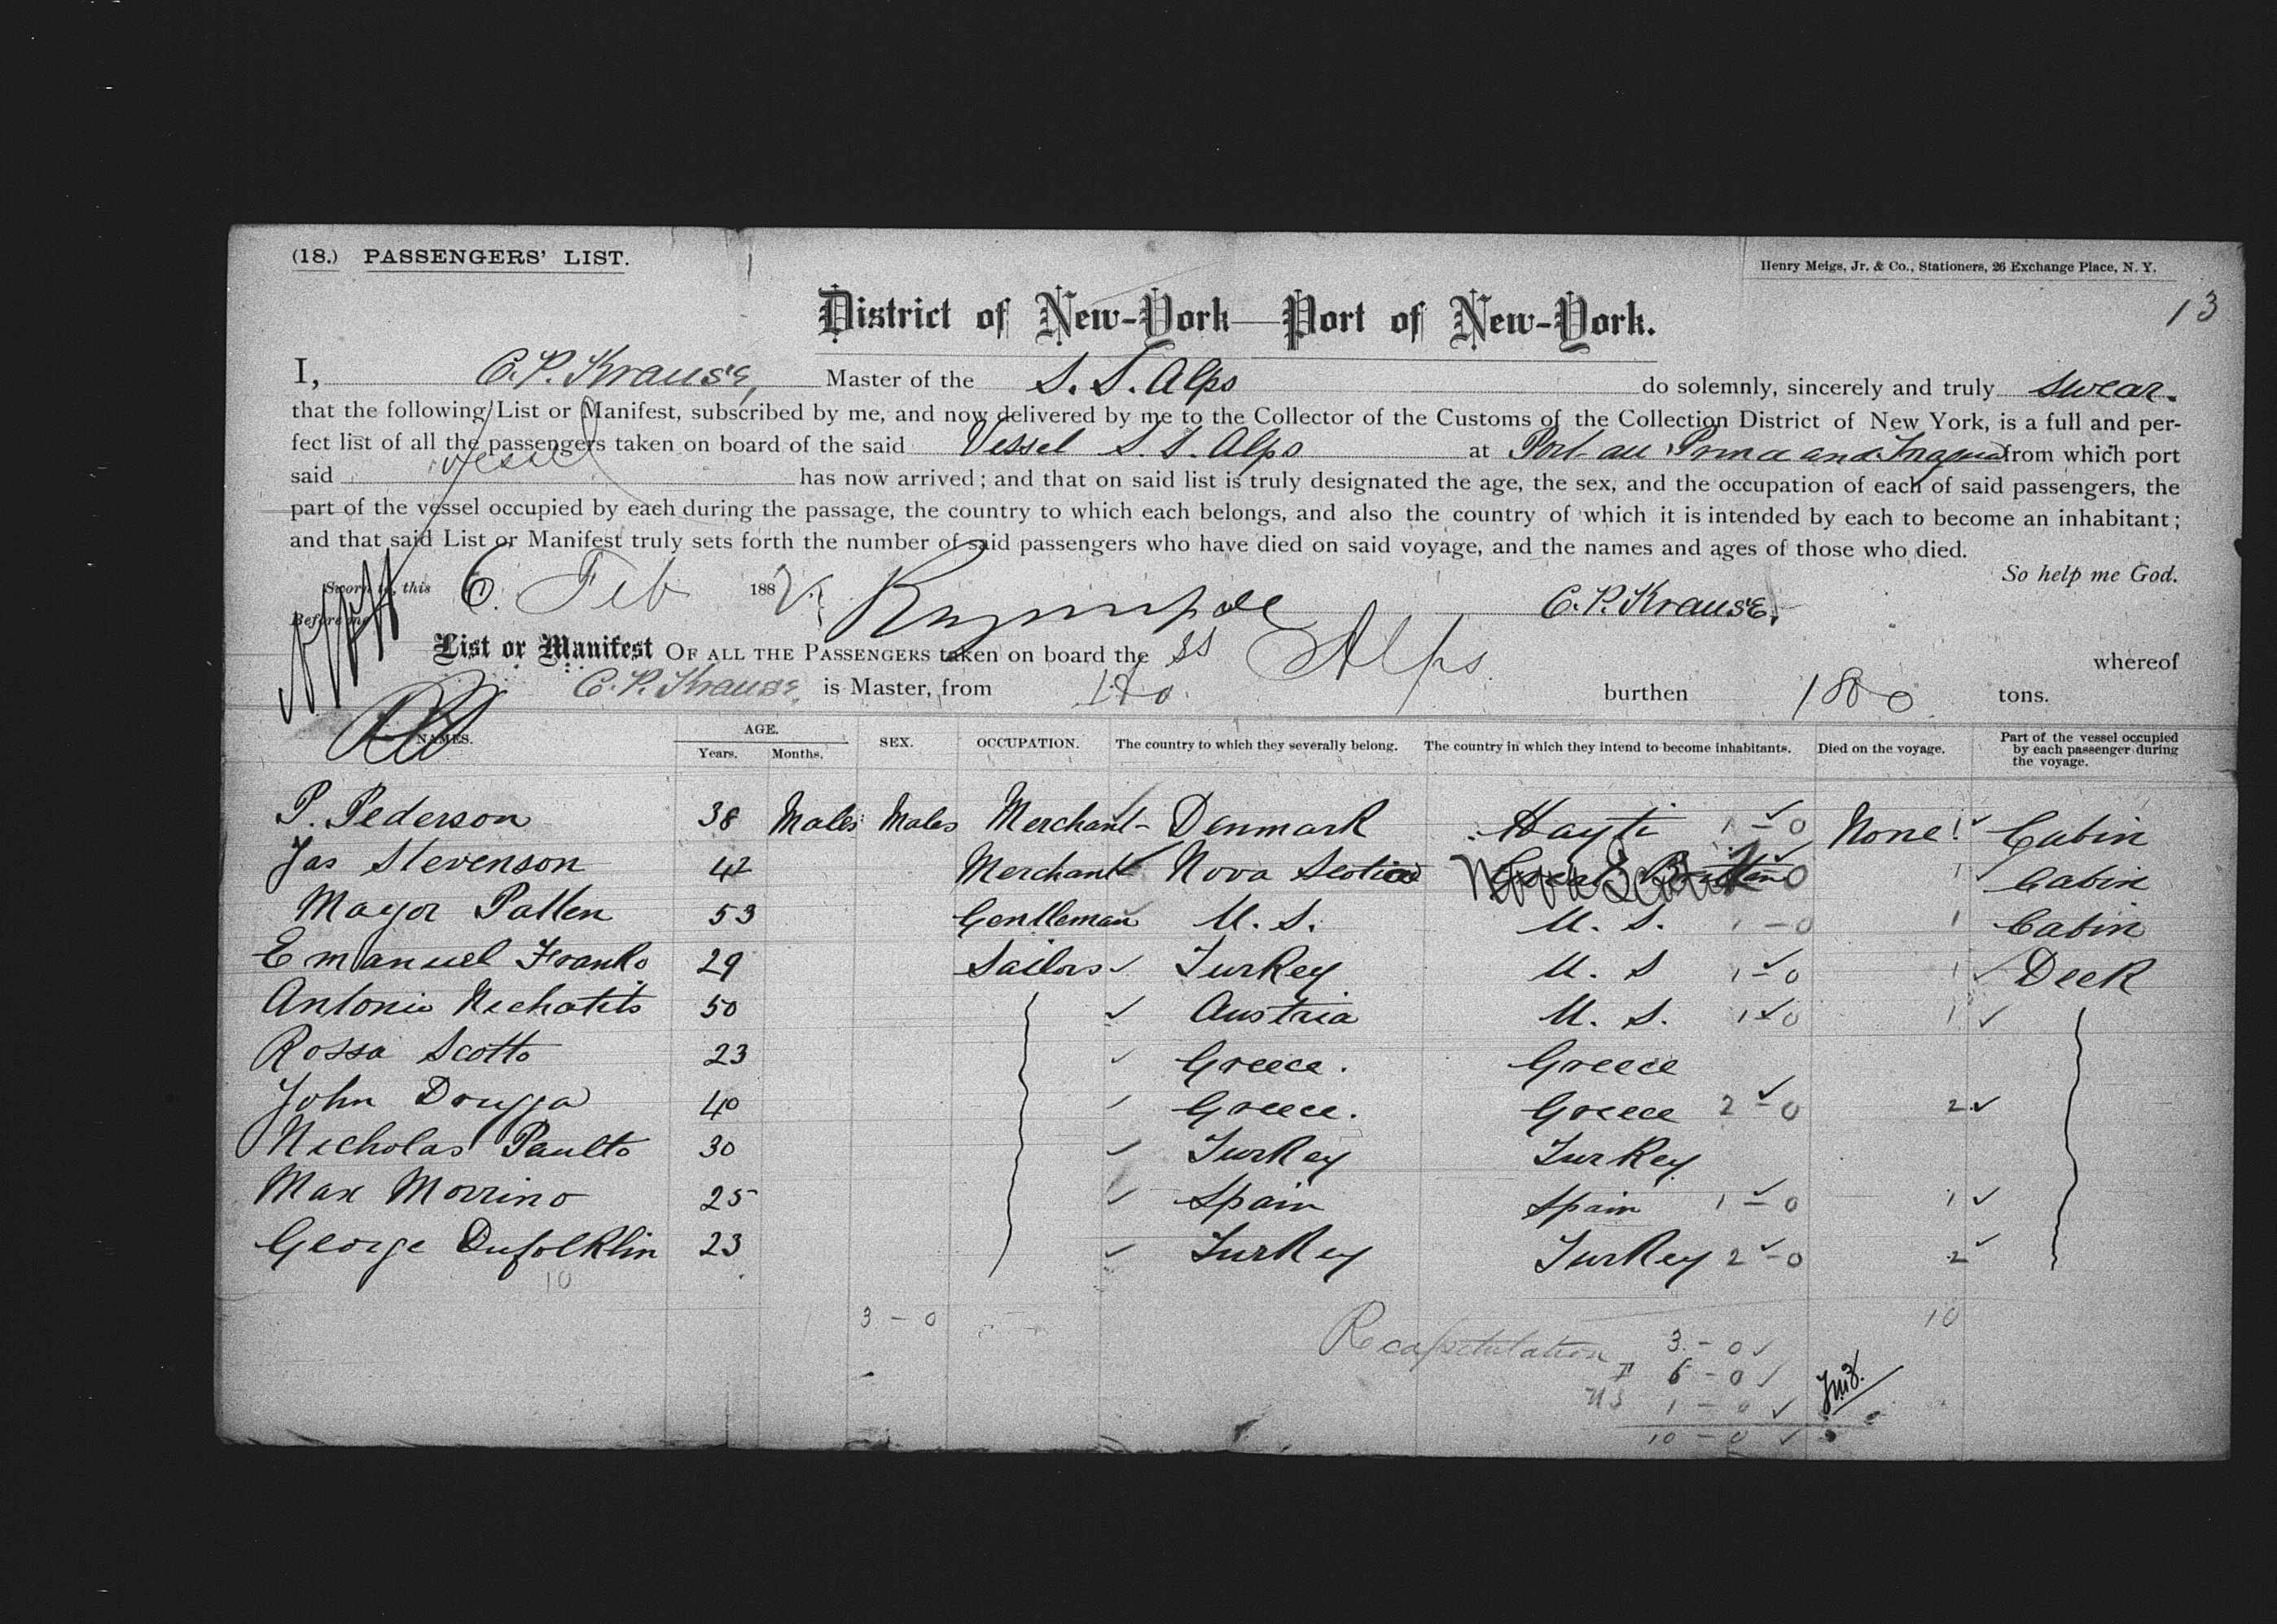 (18.) PASSENGERS' LIST.
Henry Meigs, Jr. & Co., Stationers, 26 Exchange Place, N. Y.
13
District of New-York—Port of New-York.
I, C. P. Krause, Master of the S. S. Alps do solemnly, sincerely and truly swear.
that the following List or Manifest, subscribed by me, and now delivered by me to the Collector of the Customs of the Collection District of New York, is a full and per-
fect list of all the passengers taken on board of the said Vessel S. S. Alps at Port au Prince and Inagua from which port
said vessel has now arrived; and that on said list is truly designated the age, the sex, and the occupation of each of said passengers, the
part of the vessel occupied by each during the passage, the country to which each belongs, and also the country of which it is intended by each to become an inhabitant;
and that said List or Manifest truly sets forth the number of said passengers who have died on said voyage, and the names and ages of those who died.
So help me God.
Sworn to, this 6. Feb 188 C. P. Krause.
Before me
List or Manifest OF ALL THE PASSENGERS taken on board the SS Alps whereof
C. P. Krause is Master, from burthen 1800 tons.
NAMES. AGE. Years. Months. SEX. OCCUPATION. The country to which they severally belong. The country in which they intend to become inhabitants. Died on the voyage. Part of the vessel occupied by each passenger during the voyage.
P. Pederson 38 Males Males Merchant Denmark Hayti 1 - 0 None 1 Cabin
Jas Stevenson 42 Merchant Nova Scotia Nova Scotia 0 1 Cabin
Mayor Patten 53 Gentleman U. S. U. S. 1 - 0 1 Cabin
Emanuel Franko 29 Sailors Turkey U. S 1 - 0 1 Deck
Antonio Nichotits 50 Austria U. S. 1 - 0 1
Rossa Scotto 23 Greece. Greece
John Drugga 40 Greece. Greece 2 - 0 2
Nicholas Paulto 30 Turkey Turkey
Max Morrino 25 Spain Spain 1 - 0 1
George Dufolklin 23 Turkey Turkey 2 - 0 2
10
3 - 0 10
Recapitulation 3 - 0
6 - 0
US 1 - 0
10 - 0